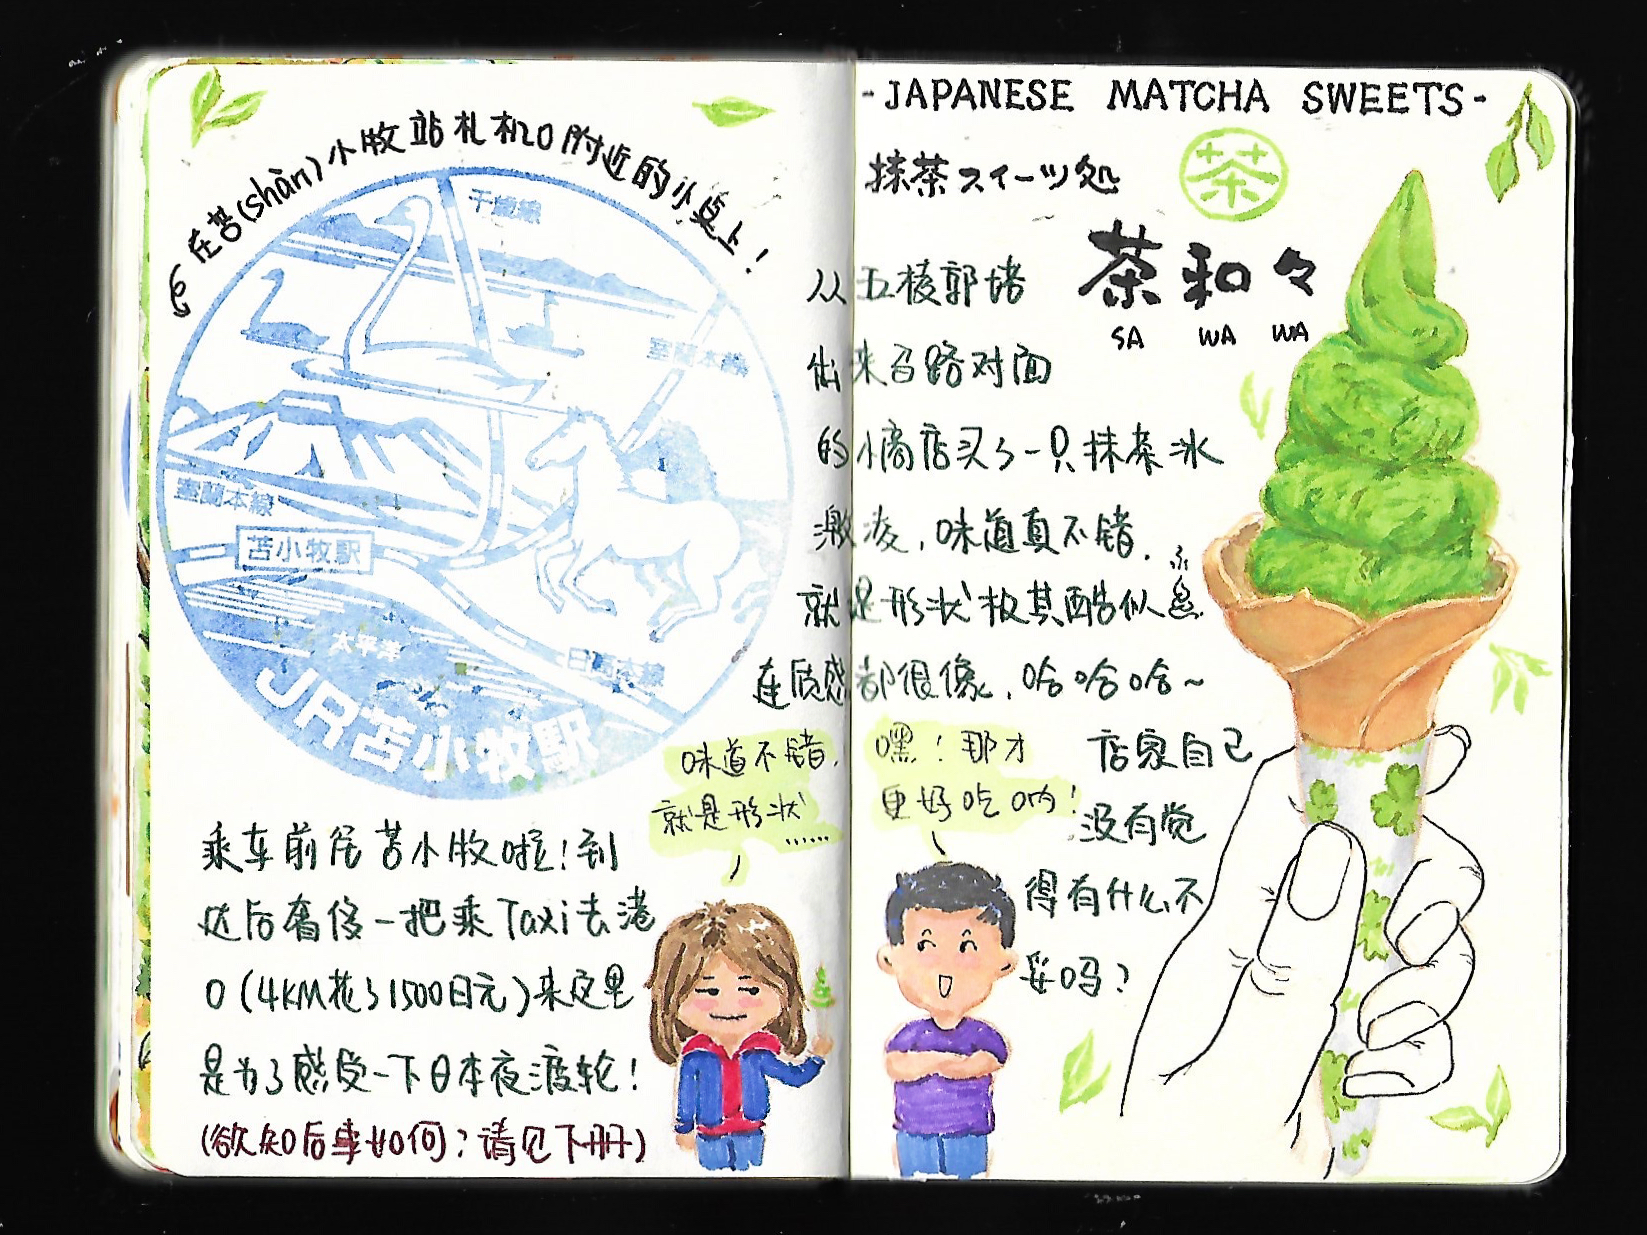 在苫(shàn)小牧站札机口附近的小桌上！
千歳線
室蘭本線
室蘭本線
苫小牧駅
太平洋
日高本線
JR苫小牧駅
乘车前居苫小牧啦！到
达后奢侈一把乘Taxi去港
口(4KM花了1500日元)来这里
是为了感受一下日本夜渡轮！
(欲知后事如何？请见下册)
-JAPANESE MATCHA SWEETS-
抹茶スイーツ処
茶
茶和々
SA WA WA
从五棱郭塔
出来马路对面
的小商店买了一只抹茶冰
激凌，味道真不错，
就是形状极其酷似
连质感都很像，哈哈哈~
店家自己
没有觉
得有什么不
妥吗？
味道不错，
就是形状
……
嘿！那才
更好吃呐！